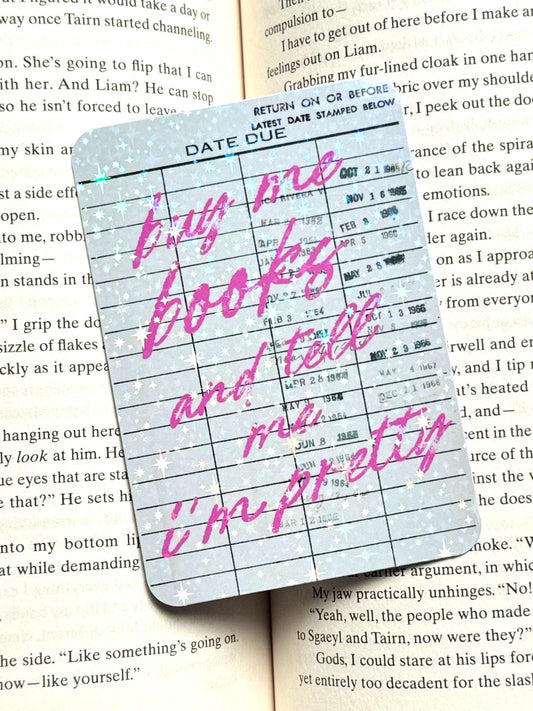 d figured it would take a day or
way once Tairn started channeling.
on. She's going to flip that I can
with her. And Liam? He can stop
so he isn't forced to leave
my skin ar
st a side effe
open.
to me, robb
lming—
n stands in the
" I grip the do
sizzle of flakes
ckly as it appea
hanging out here
ly look at him. He
ue eyes that are sta
e that?" He sets hi
nto my bottom li
at while demanding
he side. "Like something's going on.
now—like yourself."
compulsion to—
I have to get out of here before I make a
feelings out on Liam.
Grabbing my fur-lined cloak in one han
bric over my shoulde
r, I peek out the do
rance of the spira
to lean back again
emotions.
I race down the
der again.
on as I approa
er is already at
from everyon
rwell and er
, and I tip r
it's heated
d, and—
cent in the
urce of the
inst the v
he does
noke. "W
earlier argument, in which
My jaw practically unhinges. "No!
"Yeah, well, the people who made
to Sgaeyl and Tairn, now were they?"
Gods, I could stare at his lips fore
yet entirely too decadent for the slash
RETURN ON OR BEFORE
LATEST DATE STAMPED BELOW
DATE DUE
buy me
books
and tell
me
i'm pretty
OCT 21 1965
NOV 16 1965
FEB 8 1966
APR 5 1966
MAY 28
OCT 13 1966
NOV 29 1966
MAY 4 1967
DEC 11 1968
APR 28
JUN 8
MAR 12